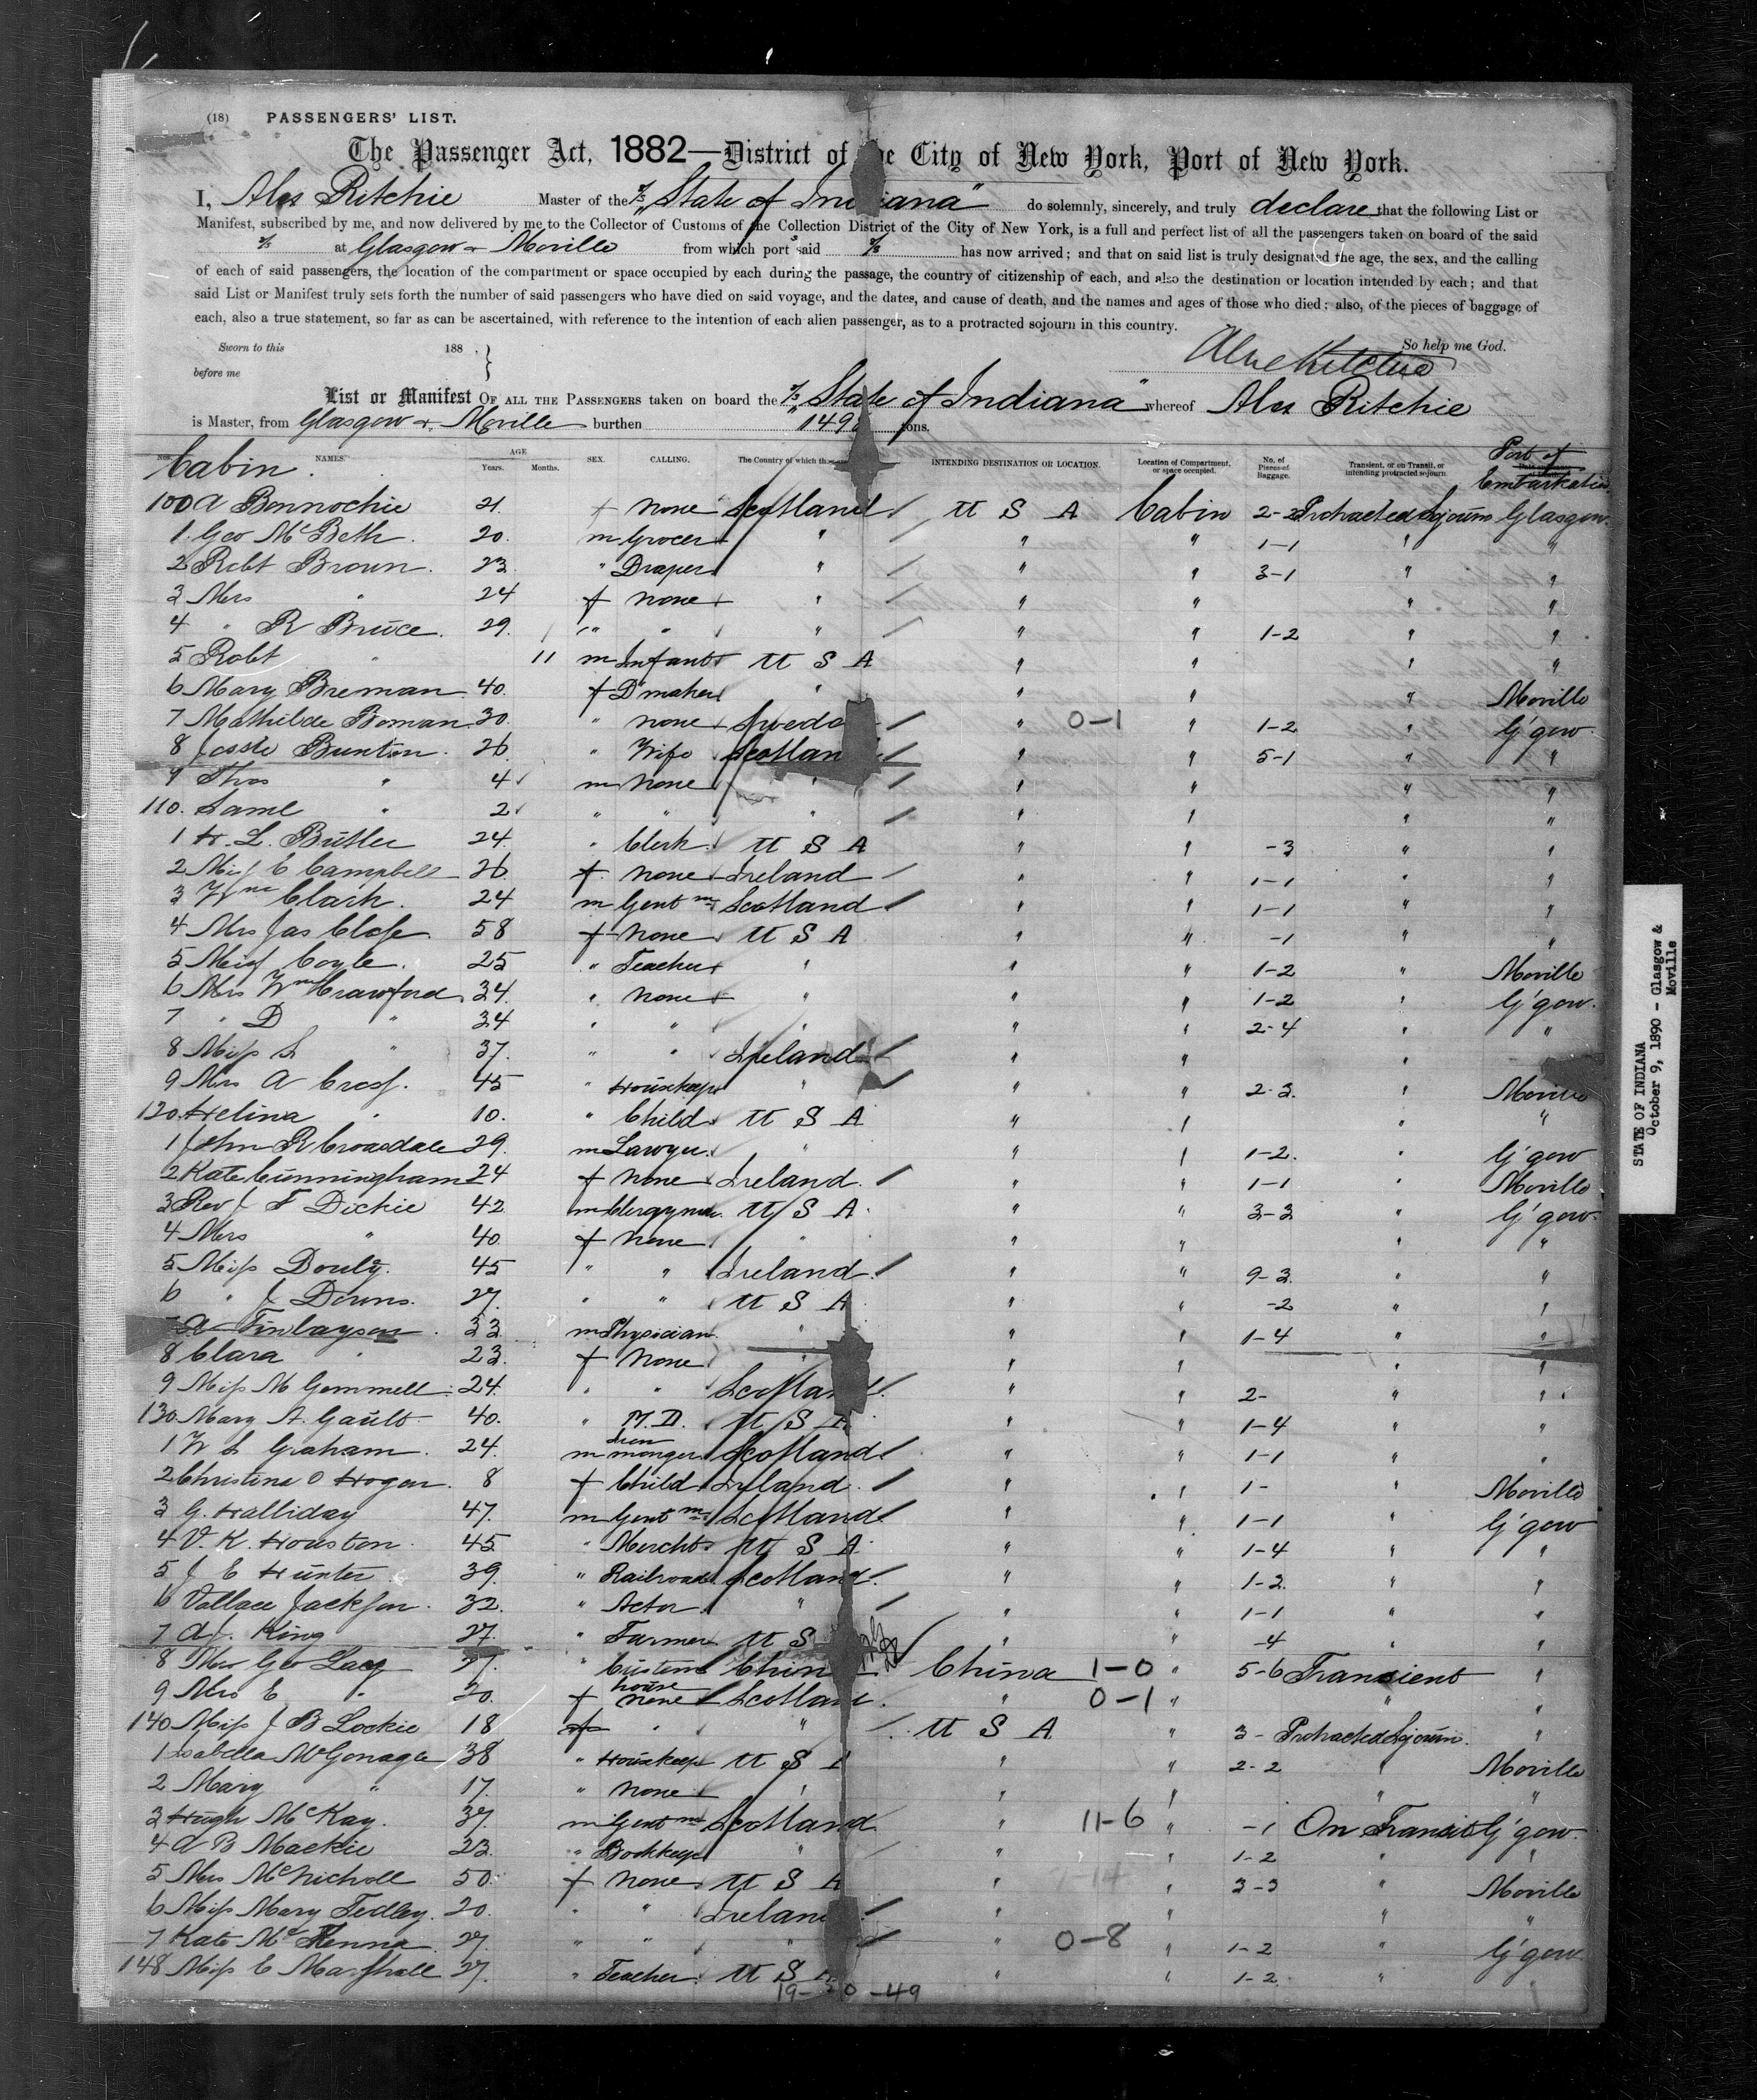 (18) PASSENGERS' LIST.
The Passenger Act, 1882—District of the City of New York, Port of New York.
I, Alex Ritchie Master of the S/S "State of Indiana" do solemnly, sincerely, and truly declare that the following List or
Manifest, subscribed by me, and now delivered by me to the Collector of Customs of the Collection District of the City of New York, is a full and perfect list of all the passengers taken on board of the said
S/S at Glasgow & Moville from which port s said S/S has now arrived; and that on said list is truly designated the age, the sex, and the calling
of each of said passengers, the location of the compartment or space occupied by each during the passage, the country of citizenship of each, and also the destination or location intended by each; and that
said List or Manifest truly sets forth the number of said passengers who have died on said voyage, and the dates, and cause of death, and the names and ages of those who died; also, of the pieces of baggage of
each, also a true statement, so far as can be ascertained, with reference to the intention of each alien passenger, as to a protracted sojourn in this country.
Sworn to this 188 . } So help me God.
before me Alex Ritchie
List or Manifest OF ALL THE PASSENGERS taken on board the S/S "State of Indiana" whereof Alex Ritchie
is Master, from Glasgow & Moville burthen 149 tons.
Nos. NAMES. AGE Years. Months. SEX. CALLING. The Country of which they INTENDING DESTINATION OR LOCATION. Location of Compartment, or space occupied. No. of Pieces of Baggage. Transient, or on Transit, or intending protracted sojourn. Port of Embarkation
Cabin
100 A Bonnochie 21. f None Scotland U S A Cabin 2-2 Protracted Sojourn Glasgow.
1. Geo McBeth. 20. m Grocer " " " 1-1 " "
2 Robt Brown. 23. " Draper " " " 3-1 " "
3 Mrs " 24 f None " " " " "
4 " R Bruce. 29. " " " " " 1-2 " "
5 Robt " 11 m Infant U S A " " " "
6 Mary Breman 40. f D'maker " " " " Moville
7 Mathilde Boman 30. " None Sweden " 0-1 " 1-2 " G'gow
8 Jessie Bunton. 26. " Wife Scotland " " 5-1 " "
9 Thos " 4 m None " " " " "
110. Saml " 2 " " " " " " "
1 H. L. Butler 24. " Clerk. U S A " " -3 " "
2 Miss E Campbell 26 f. None Ireland " " 1-1 " "
3 Wm Clark. 24 m Gentm Scotland " " 1-1 " "
4 Mrs Jas Close. 58 f None U S A " " -1 " "
5 Miss Coyle. 25 " Teacher " " " 1-2 " Moville
6 Mrs Wm Crawford 34. " None " " " 1-2 " G'gow.
7 " D " 34 " " " " " 2-4 " "
8 Miss S " 37. " " Ireland " " " "
9 Mrs A Cross. 45 " Housekeeper " " " 2-3. " Moville
120. Helina " 10. " Child U S A " " " "
1 John R Croasdale 29. m Lawyer. " " " 1-2. " G'gow
2 Kate Cunningham 24 f None Ireland. " " 1-1 " Moville
3 Rev J F Dickie 42 m Clergyman. U S A. " " 3-3 " G'gow.
4 Mrs " 40. f None. " " " " "
5 Miss Douly. 45 " " Ireland. " " 9-3. " "
6 " J Downs. 27. " " U S A " " -2 " "
A Finlayson. 33 m Physician " " " 1-4 " "
8 Clara " 23. f None " " " " "
9 Miss M Gemmell 24. " " Scotland. " " 2- " "
130. Mary A. Gault 40. " M.D. U S A " " 1-4 " "
1 W S Graham. 24. m Iron monger Scotland " " 1-1 " "
2 Christina O Hogan. 8 f Child Ireland. " " 1- " Moville
3 G. Halliday 47. m Gentm Scotland. " " 1-1 " G'gow
4 V. K. Houston. 45. " Mercht U S A. " " 1-4 " "
5 J E Hunter. 39. " Railroad Scotland. " " 1-2. " "
6 Vallace Jackson. 32. " Actor. " " " 1-1 " "
7 A J. King 27. " Farmer U S " " -4 " "
8 Mr Geo Lacy 27. " Customs house China China 1-0 " 5-6 Transient "
9 Mrs E " 20. f None Scotland. " 0-1 " " "
140 Miss J B Lockie 18 f " " U S A " 3- Protracted Sojourn. "
1 Isabella McGonagle 38 " Housekeeper U S A " " 2-2 " Moville
2 Mary " 17. " None " " " " "
3 Hugh McKay. 37. m Gentm Scotland " 11-6 " -1 On Transit G'gow.
4 A B Mackie 23. " Bookkeeper " " " 1-2 " "
5 Mrs McNicholl 50. f None U S A " " 3-3 " Moville
6 Miss Mary Tedley. 20. " " Ireland " " " "
7 Kate McKenna 27. " " " " 0-8 " 1-2 " G'gow
148 Miss E Marshall 27. " Teacher. U S A " " 1-2. " "
19- 0 -49
STATE OF INDIANA
October 9, 1890 - Glasgow &
Moville